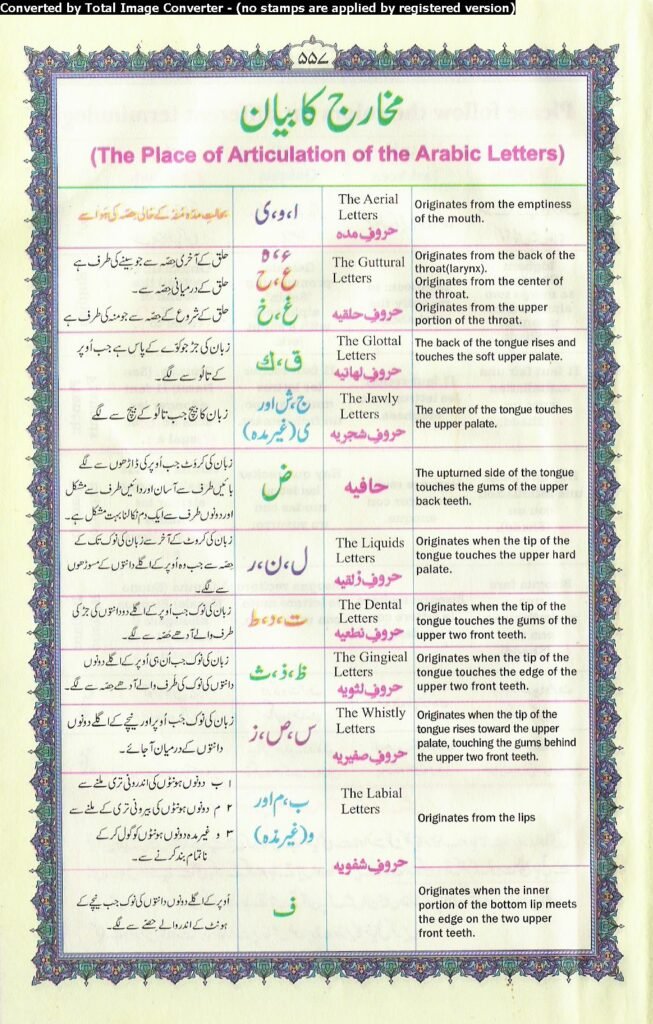 Converted by Total Image Converter - (no stamps are applied by registered version)
۵۵۷
مخارج کا بیان
(The Place of Articulation of the Arabic Letters)
بحالتِ مدّہ مُنہ کے خالی حِصّہ کی ہَوا سے
ا، و، ی
The Aerial
Letters
حروفِ مدہ
Originates from the emptiness
of the mouth.
حلق کے آخری حِصّہ سے جو سینے کی طرف ہے
حلق کے درمیانی حِصّہ سے۔
حلق کے شروع کے حِصّہ سے جو منہ کی طرف ہے
ء، ہ
ع، ح
غ، خ
The Guttural
Letters
حروفِ حلقیہ
Originates from the back of the
throat(larynx).
Originates from the center of
the throat.
Originates from the upper
portion of the throat.
زبان کی جڑ جو کوّے کے پاس ہے جب اُوپر
کے تالُو سے لگے۔
ق، ك
The Glottal
Letters
حروفِ لہاتیہ
The back of the tongue rises and
touches the soft upper palate.
زبان کا بیچ جب تالُو کے بیچ سے لگے
ج، ش اور
ی (غیر مدہ)
The Jawly
Letters
حروفِ شجریہ
The center of the tongue touches
the upper palate.
زبان کی کروٹ جب اُوپر کی ڈاڑھوں سے لگے
بائیں طرف سے آسان اور دائیں طرف سے مشکل
اور دونوں طرف سے ایک دم نکالنا بہت مشکل ہے۔
ض
حافیہ
The upturned side of the tongue
touches the gums of the upper
back teeth.
زبان کی کروٹ کے آخر سے زبان کی نوک تک کے
حِصّہ سے جب وہ اُوپر کے اگلے دانتوں کے مسوڑھوں
سے لگے۔
ل، ن، ر
The Liquids
Letters
حروفِ زلقیہ
Originates when the tip of the
tongue touches the upper hard
palate.
زبان کی نوک جب اُوپر کے اگلے دو دانتوں کی جڑ کی
طرف والے آدھے حِصّہ سے لگے۔
ت، د، ط
The Dental
Letters
حروفِ نطعیہ
Originates when the tip of the
tongue touches the gums of the
upper two front teeth.
زبان کی نوک جب اُن ہی اُوپر کے اگلے دونوں
دانتوں کے نوک کی طرف والے آدھے حِصّہ سے لگے۔
ظ، ذ، ث
The Gingieal
Letters
حروفِ لثویہ
Originates when the tip of the
tongue touches the edge of the
upper two front teeth.
زبان کی نوک جب اُوپر اور نیچے کے اگلے دونوں
دانتوں کے درمیان آ جائے۔
س، ص، ز
The Whistly
Letters
حروفِ صفیریہ
Originates when the tip of the
tongue rises toward the upper
palate, touching the gums behind
the upper two front teeth.
۱ ب دونوں ہونٹوں کی اندرونی تری ملنے سے
۲ م دونوں ہونٹوں کی بیرونی تری کے ملنے سے
۳ و غیر مدہ دونوں ہونٹوں کو گول کر کے
ناتمام بند کرنے سے۔
ب، م اور
و (غیر مدّہ)
The Labial
Letters
حروفِ شفویہ
Originates from the lips
اُوپر کے اگلے دونوں دانتوں کی نوک جب نیچے کے
ہونٹ کے اندر والے حصّے سے لگے۔
ف
Originates when the inner
portion of the bottom lip meets
the edge on the two upper
front teeth.